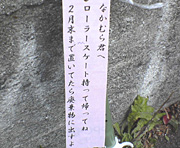 なかむら君へ
ローラースケート持って帰ってね
2月末まで置いてたら廃棄物に出すよ